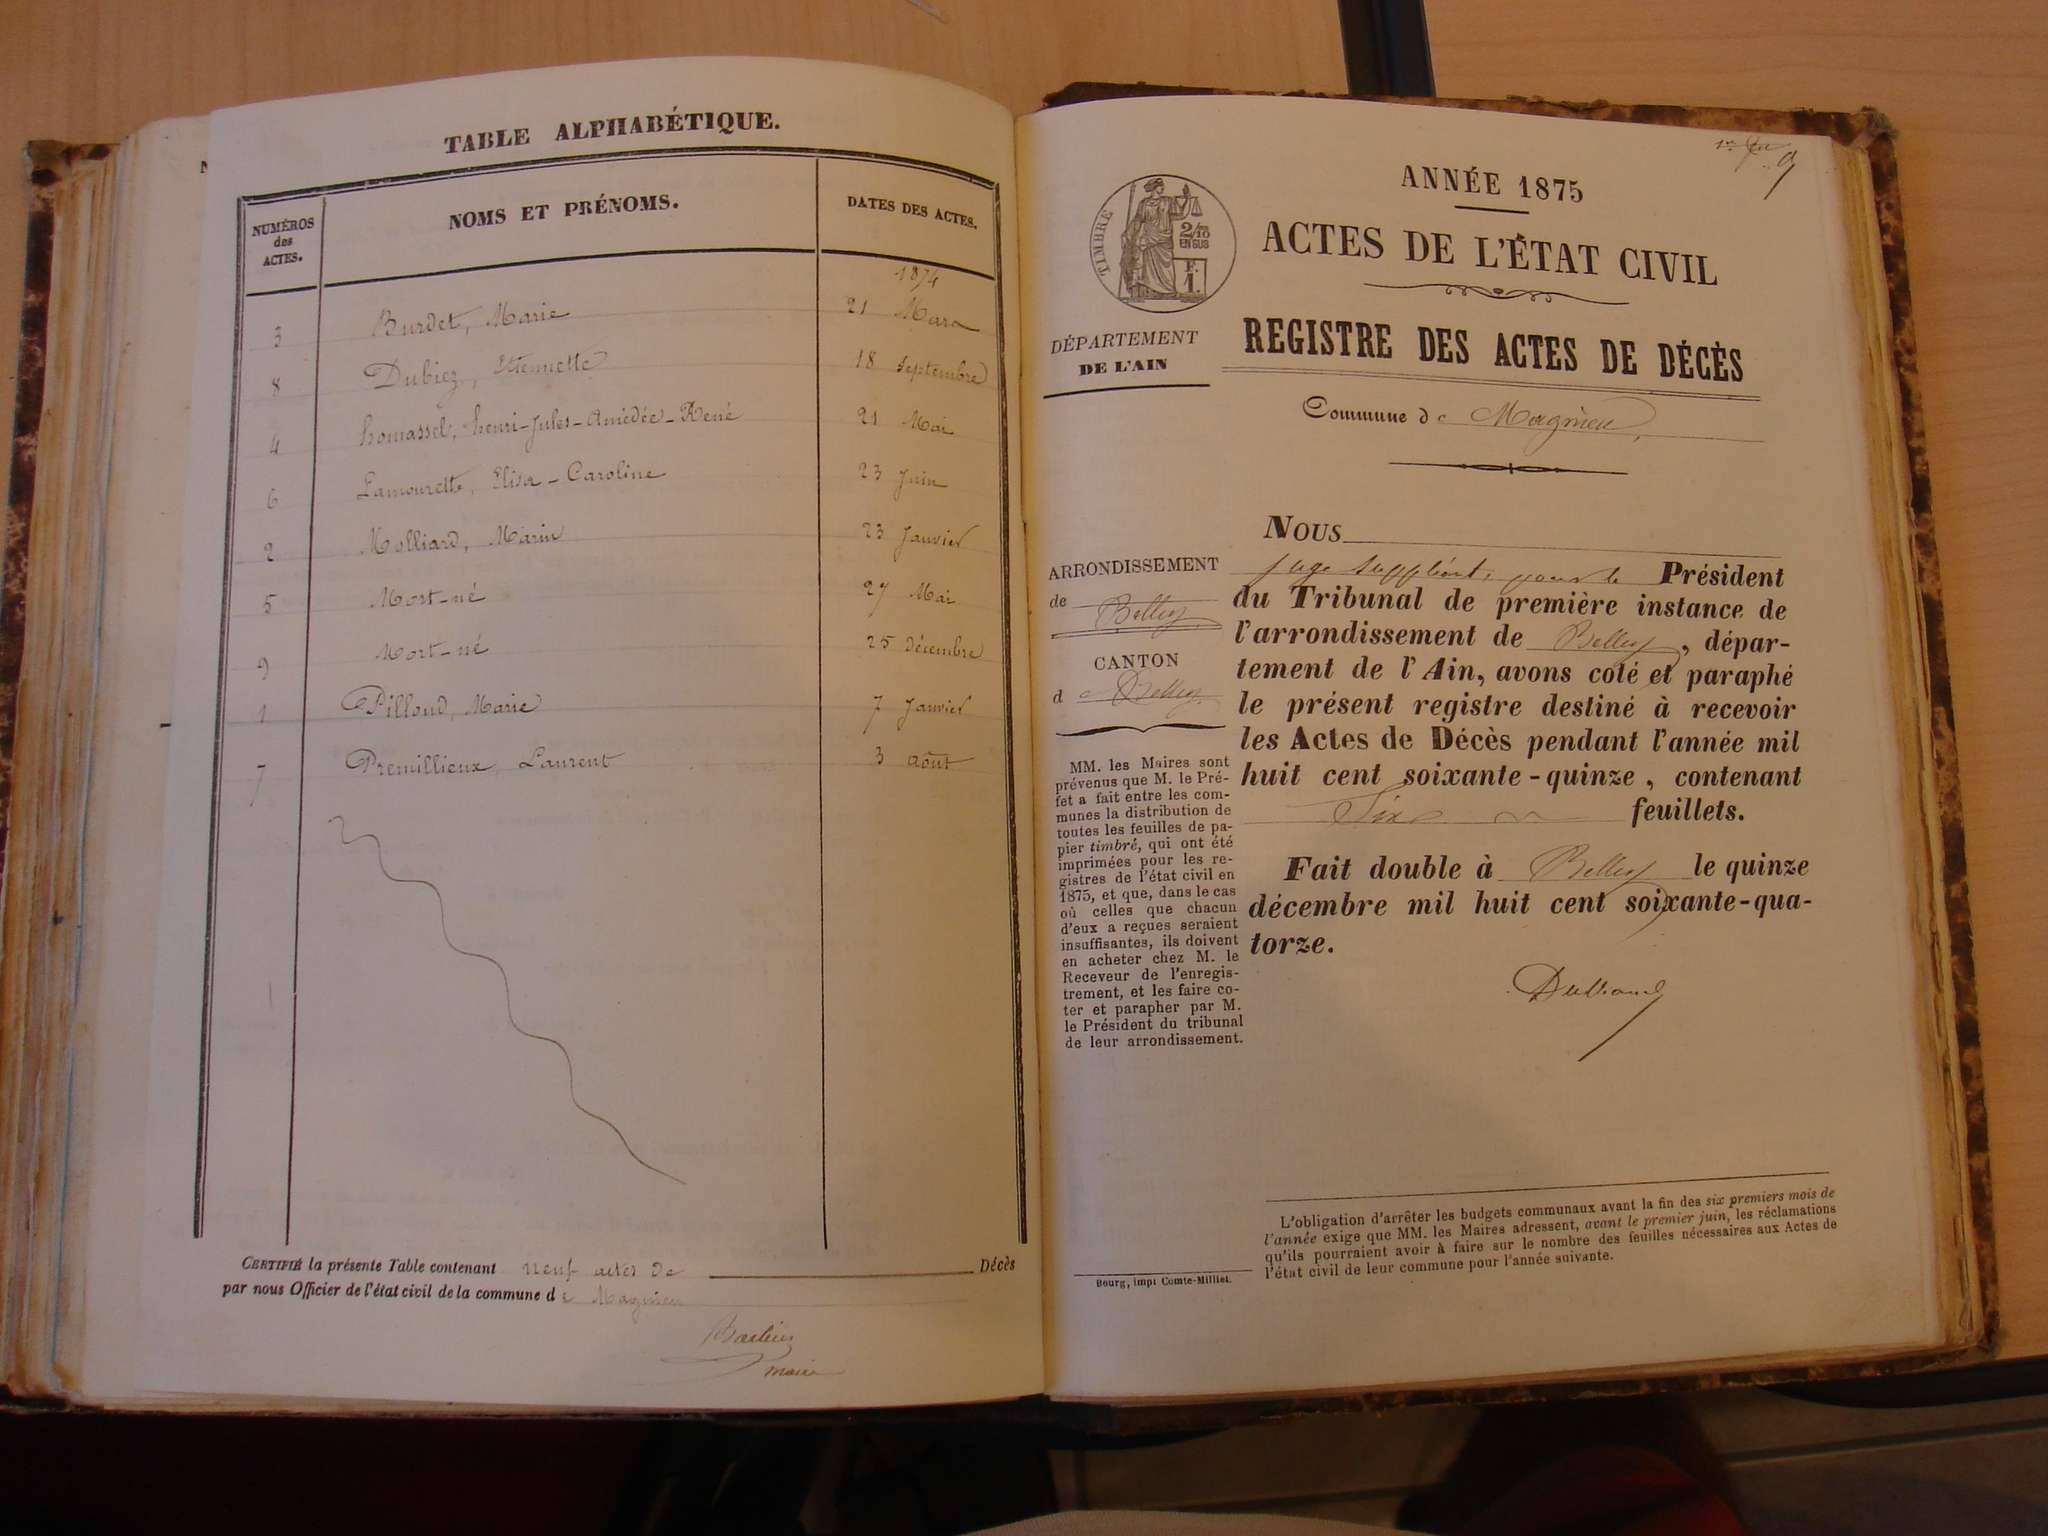 TABLE ALPHABÉTIQUE.
NUMÉROS
des
ACTES.
NOMS ET PRÉNOMS.
DATES DES ACTES.
1874
3 Burdet, Marie 21 Mars
8 Dubiez, Etiennette 18 Septembre
4 homassel, henri-Jules-Amédée-René 21 Mai
6 Lamourette, Elisa-Caroline 23 Juin
2 Molliard, Marin 23 Janvier
5 Mort-né 27 Mai
9 Mort-né 25 décembre
1 Pilloud, Marie 7 Janvier
7 Premillieux, Laurent 3 août
CERTIFIÉ la présente Table contenant neuf actes de Décès
par nous Officier de l'état civil de la commune de Magnieu
maire
9
ANNÉE 1875
ACTES DE L'ÉTAT CIVIL
REGISTRE DES ACTES DE DÉCÈS
Commune de Magnieu,
TIMBRE
2/10
EN SUS
F.
1.
DÉPARTEMENT
DE L'AIN
ARRONDISSEMENT
de
Belley
CANTON
de Belley
MM. les Maires sont
prévenus que M. le Pré-
fet a fait entre les com-
munes la distribution de
toutes les feuilles de pa-
pier timbré, qui ont été
imprimées pour les re-
gistres de l'état civil en
1875, et que, dans le cas
où celles que chacun
d'eux a reçues seraient
insuffisantes, ils doivent
en acheter chez M. le
Receveur de l'enregis-
trement, et les faire co-
ter et parapher par M.
le Président du tribunal
de leur arrondissement.
NOUS
juge suppléant, pour le Président
du Tribunal de première instance de
l'arrondissement de Belley, dépar-
tement de l'Ain, avons coté et paraphé
le présent registre destiné à recevoir
les Actes de Décès pendant l'année mil
huit cent soixante-quinze, contenant
Six feuillets.
Fait double à Belley le quinze
décembre mil huit cent soixante-qua-
torze.
L'obligation d'arrêter les budgets communaux avant la fin des six premiers mois de
l'année exige que MM. les Maires adressent, avant le premier juin, les réclamations
qu'ils pourraient avoir à faire sur le nombre des feuilles nécessaires aux Actes de
l'état civil de leur commune pour l'année suivante.
Bourg, imp. Comte-Milliet.